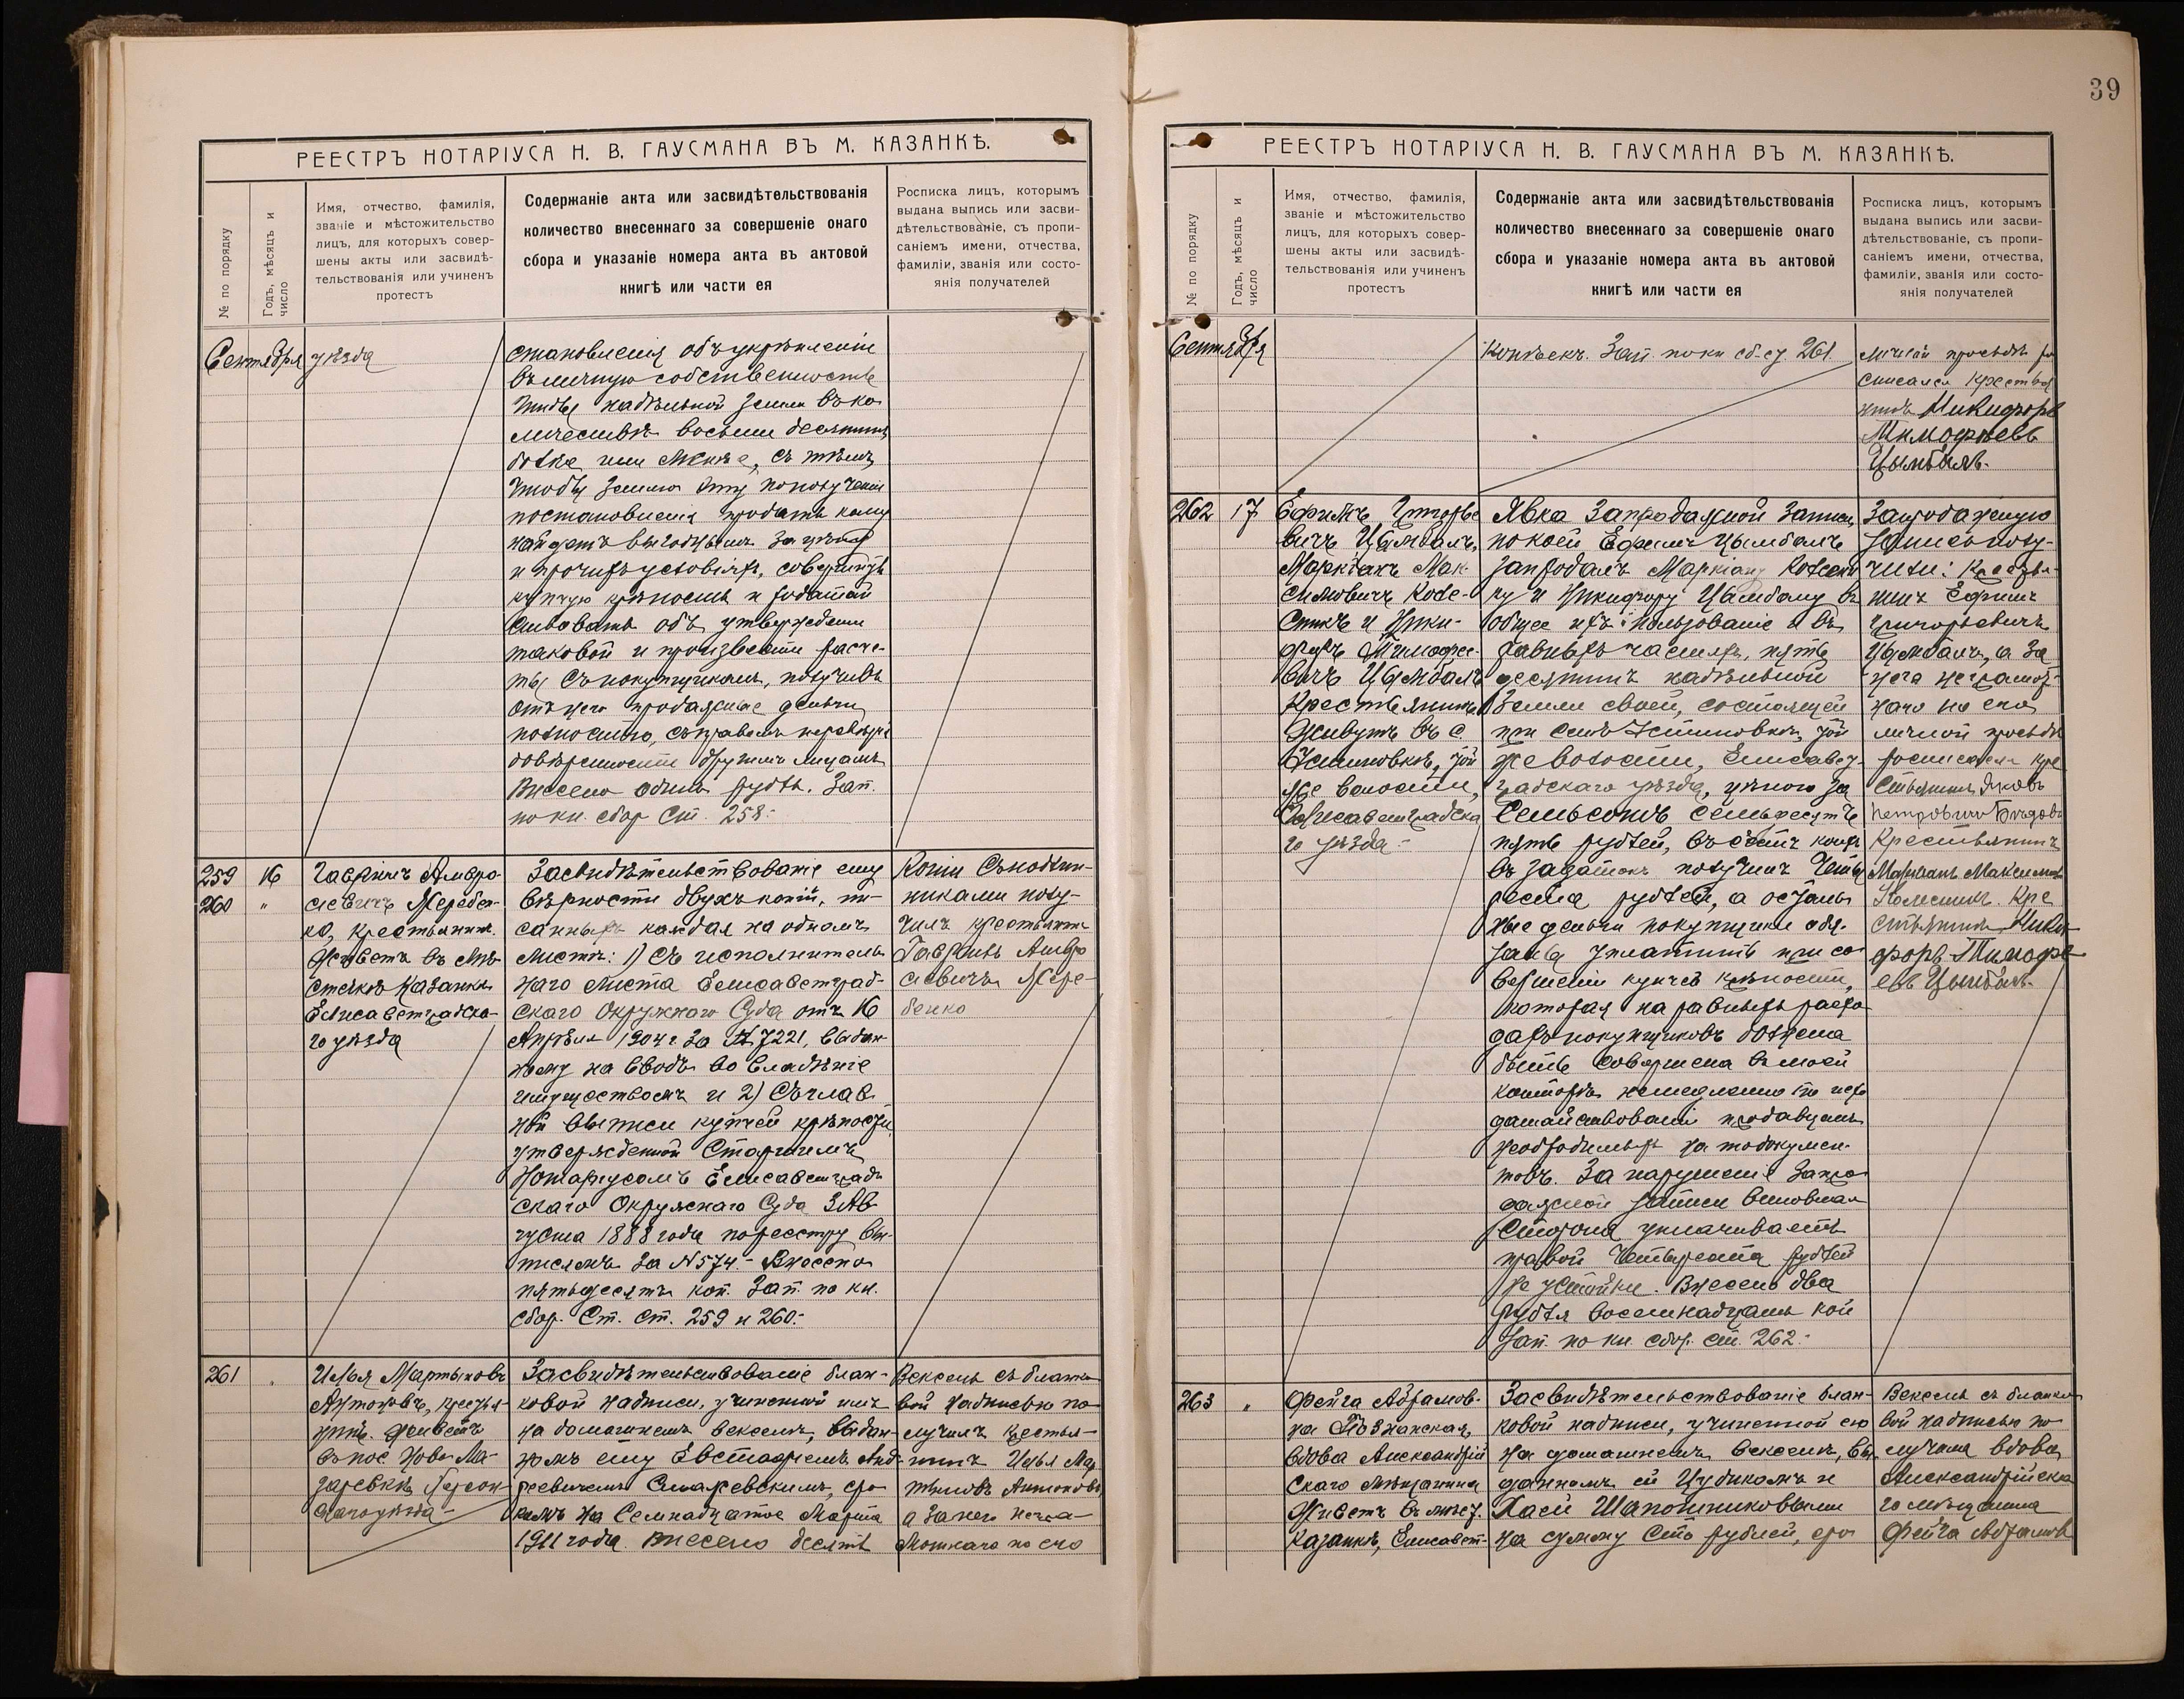 39
РЕЕСТРЪ НОТАРІУСА Н. В. ГАУСМАНА ВЪ М. КАЗАНКѢ.
№ по порядку
Годъ, мѣсяцъ и
число
Имя, отчество, фамилія,
званіе и мѣстожительство
лицъ, для которыхъ совер-
шены акты или засвидѣ-
тельствованія или учиненъ
протестъ
Содержаніе акта или засвидѣтельствованія
количество внесеннаго за совершеніе онаго
сбора и указаніе номера акта въ актовой
книгѣ или части ея
Росписка лицъ, которымъ
выдана выпись или засви-
дѣтельствованіе, съ пропи-
саніемъ имени, отчества,
фамиліи, званія или состо-
янія получателей
Сентября
уѣзда
становленія объ укрѣпленіи
въ личную собственность
надѣльной земли въ ко
личествѣ восьми десятинъ
болѣе или менѣе, съ тѣмъ,
чтобы землю эту по полученіи
постановленія продать кому
найдетъ выгоднымъ за цѣну
и прочихъ условіяхъ, совершить
купчую крѣпость и ходатай
ствовать объ утвержденіи
таковой и произвести расче-
ты съ покупщикомъ, получивъ
отъ него продажные деньги
полностью, съ правомъ передачи
довѣренности другимъ лицамъ
Внесено одинъ рубль. Зап.
по кн. сбор. Ст. 258.-
259
260
16
"
Гавріилъ Амвро-
сіевичъ Жеребен-
ко, крестьянинъ.
Живетъ въ мѣ-
стечкѣ Казанкѣ
Елисаветградска-
го уѣзда
Засвидѣтельствованіе ему
вѣрности двухъ копій, пи-
санныхъ каждая на одномъ
листѣ: 1) Съ исполнитель
наго листа Елисаветград-
скаго Окружнаго Суда отъ 16
Апрѣля 1904 г. за № 7221, выдан-
ному на вводъ во владѣніе
имуществомъ и 2) Съ глав
ной выписи купчей крѣпости,
утвержденной Старшимъ
Нотаріусомъ Елисаветград
скаго Окружнаго Суда 3 Ав
густа 1888 года по реестру вы-
писямъ за № 574.- Внесено
пятьдесятъ коп. Зап. по кн.
сбор. Ст. ст. 259 и 260.-
Копіи съ подлин-
никами полу-
чилъ крестьянинъ
Гавріилъ Амвро
сіевичъ Жере-
бенко
261
"
Илья Мартыновъ
Антоновъ, крестья-
нинъ. Живетъ
въ пос. Ново-Ма-
заревкѣ Херсон-
скаго уѣзда -
Засвидѣтельствованіе блан-
ковой надписи, учиненной имъ
на домашнемъ векселѣ, выдан-
номъ ему Евстафіемъ Анд-
реевичемъ, сро
комъ на Семнадцатое Марта
1911 года. Внесено десять
Вексель съ бланко
вой надписью по-
лучилъ крестья-
нинъ Илья Мар
тыновъ Антоновъ
а за него негра-
мотнаго по его
РЕЕСТРЪ НОТАРІУСА Н. В. ГАУСМАНА ВЪ М. КАЗАНКѢ.
№ по порядку
Годъ, мѣсяцъ и
число
Имя, отчество, фамилія,
званіе и мѣстожительство
лицъ, для которыхъ совер-
шены акты или засвидѣ-
тельствованія или учиненъ
протестъ
Содержаніе акта или засвидѣтельствованія
количество внесеннаго за совершеніе онаго
сбора и указаніе номера акта въ актовой
книгѣ или части ея
Росписка лицъ, которымъ
выдана выпись или засви-
дѣтельствованіе, съ пропи-
саніемъ имени, отчества,
фамиліи, званія или состо-
янія получателей
Сентября
копѣекъ. Зап. по кн. сб. ст. 261.
личной просьбѣ ро
списался крестья
нинъ Никифоръ
Тимофѣевъ
Цымбалъ.
262
17
Ефимъ Григорье
вичъ Цымбалъ,
Маркіанъ Мак-
симовичъ Коле-
сникъ и Ники-
форъ Тимофее-
вичъ Цымбалъ
Крестьянинъ
Живутъ въ с.
Устиновкѣ, той
же волости,
Елисаветградска
го уѣзда.-
Явка запродажной записи,
по коей Ефимъ Цымбалъ
запродалъ Маркіану Колесни
ку и Никифору Цымбалу въ
общее ихъ пользованіе и въ
равныхъ частяхъ, пять
десятинъ надѣльной
земли своей, состоящей
при селѣ Устиновкѣ, той
же волости, Елисавет
градскаго уѣзда, цѣною за
Семьсотъ семьдесятъ
пять рублей, въ счетъ коихъ
въ задатокъ получилъ Четы
реста рублей, а осталь
ные деньги покупщики обя-
заны уплатить при со
вершеніи купчей крѣпости,
которая на равныхъ расхо
дахъ покупщиковъ должна
быть совершена въ моей
конторѣ немедленно по исхо
датайствованіи продавцомъ
необходимыхъ на то докумен-
товъ. За нарушеніе запро
дажной записи виновная
Сторона уплачиваетъ
правой Четыреста рублей
неустойки. Внесено два
рубля восемнадцать коп
Зап. по кн. сбор. ст. 262.-
Запродажную
запись полу-
чили: Крестья-
нинъ Ефимъ
Григорьевичъ
Цымбалъ, а за
него неграмот-
наго по его
личной просьбѣ
росписался кре
стьянинъ Яковъ
Петровичъ
Крестьянинъ
Маркіанъ Максимовъ
Колесникъ. Кре
стьянинъ Ники
форъ Тимофе
евъ Цымбалъ.
263
"
Фейга Абрамов-
на Познанская,
вдова Александрій
скаго мѣщанина
Живетъ въ мѣст.
Казанкѣ, Елисавет-
Засвидѣтельствованіе блан-
ковой надписи, учиненной ею
на домашнемъ векселѣ, вы
данномъ ей Цудикомъ и
Хаей Шапошниковыми
на сумму Сто рублей, сро
Вексель съ бланко
вой надписью по
лучила вдова
Александрійска
го мѣщанина
Фейга Абрамов